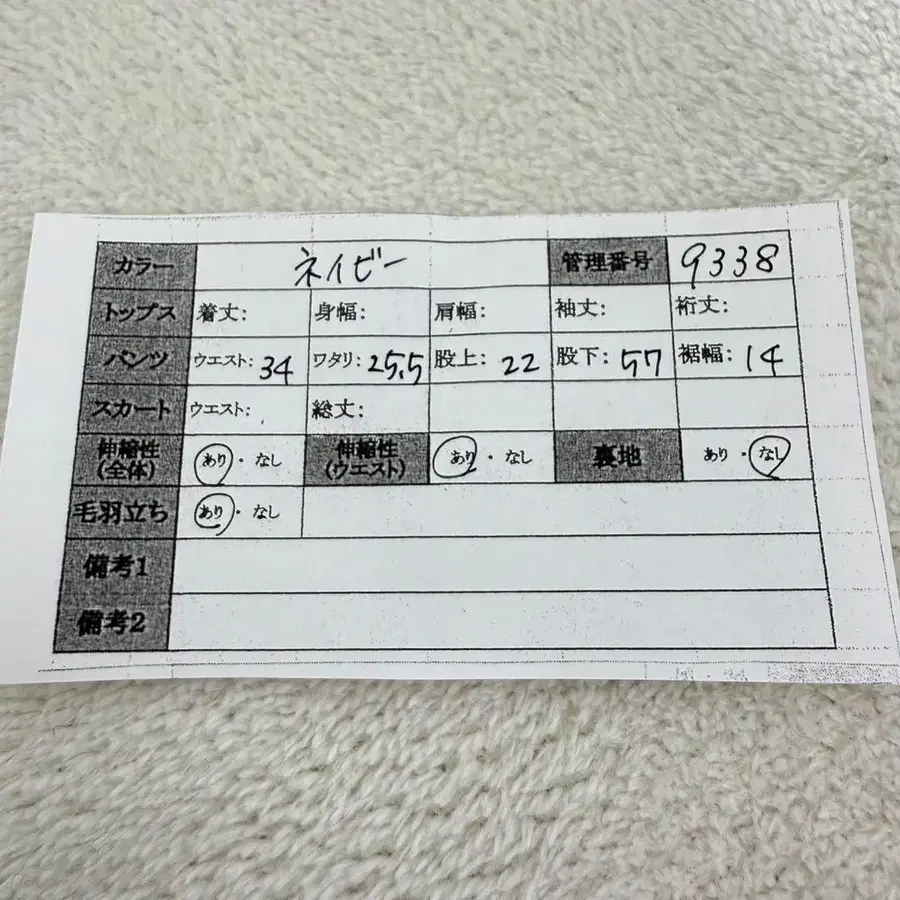 カラー ネイビー 管理番号 9338
トップス 着丈: 身幅: 肩幅: 袖丈: 裄丈:
パンツ ウエスト: 34 ワタリ: 25.5 股上: 22 股下: 57 裾幅: 14
スカート ウエスト: 総丈:
伸縮性(全体) あり・なし 伸縮性(ウエスト) あり・なし 裏地 あり・なし
毛羽立ち あり・なし
備考1
備考2